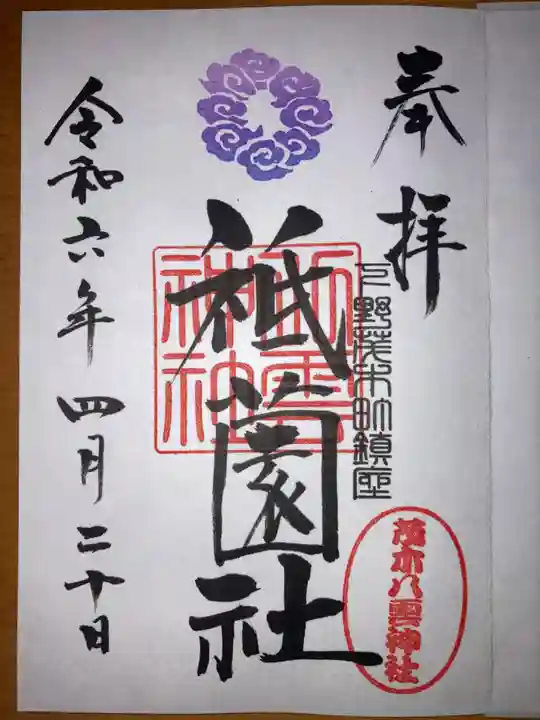 奉拝
下野茂木町鎮座
茂木八雲神社
祇園社
八雲神社
令和六年四月二十日